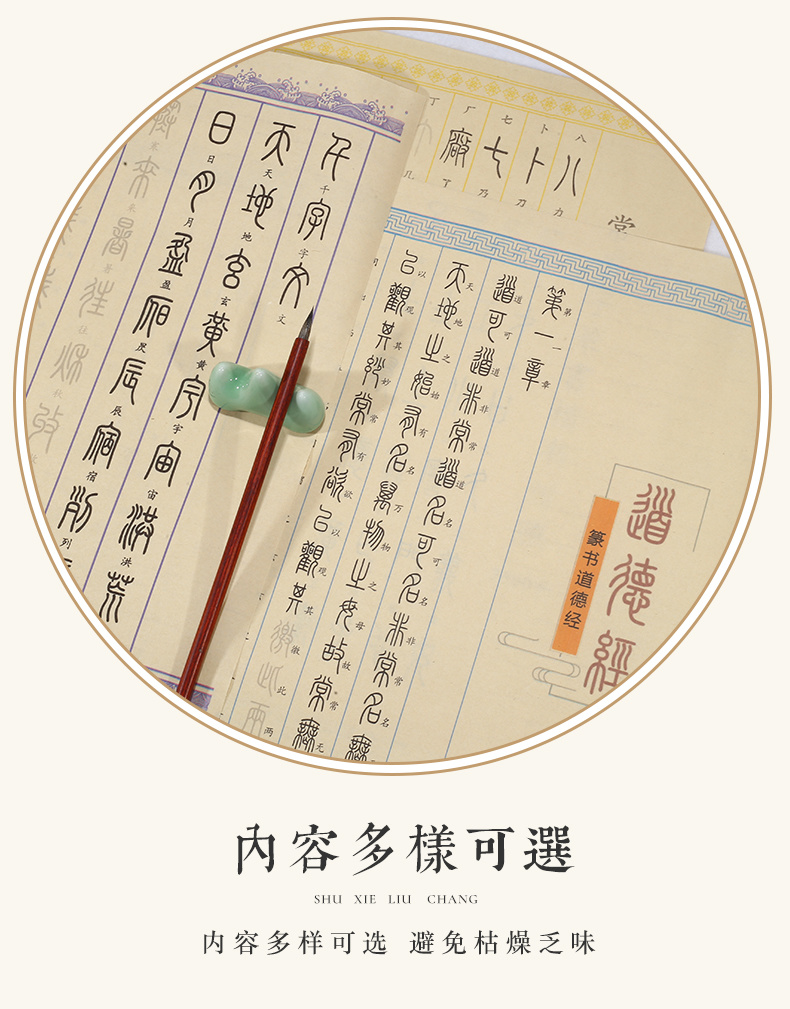 八
卜
七
厂
丁
力
刀
乃
丅
几
八
卜
七
廠
常
千字文
千字文
天地玄黃宇
天地玄黄宇
日月盈昃辰宿列
日月盈昃辰宿列
宙洪荒
宙洪
寒來暑往秋收
寒来暑往秋
道德經
篆书道德经
第一章
第一章
道可道非常道名可名非常名無
道可道非常道名可名非常名
天地之始有名萬物之母故常無
天地之始有名万物之母故常无
以觀其妙常有欲以觀其徼此兩
以观其妙常有欲以观其徼此两
內容多樣可選
SHU XIE LIU CHANG
内容多样可选 避免枯燥乏味